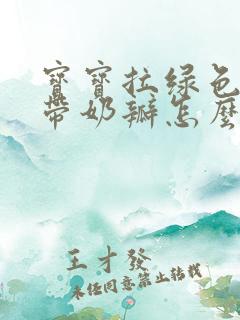 寶寶拉綠色
帶奶瓣怎麼
王才發
未經同意禁止轉載